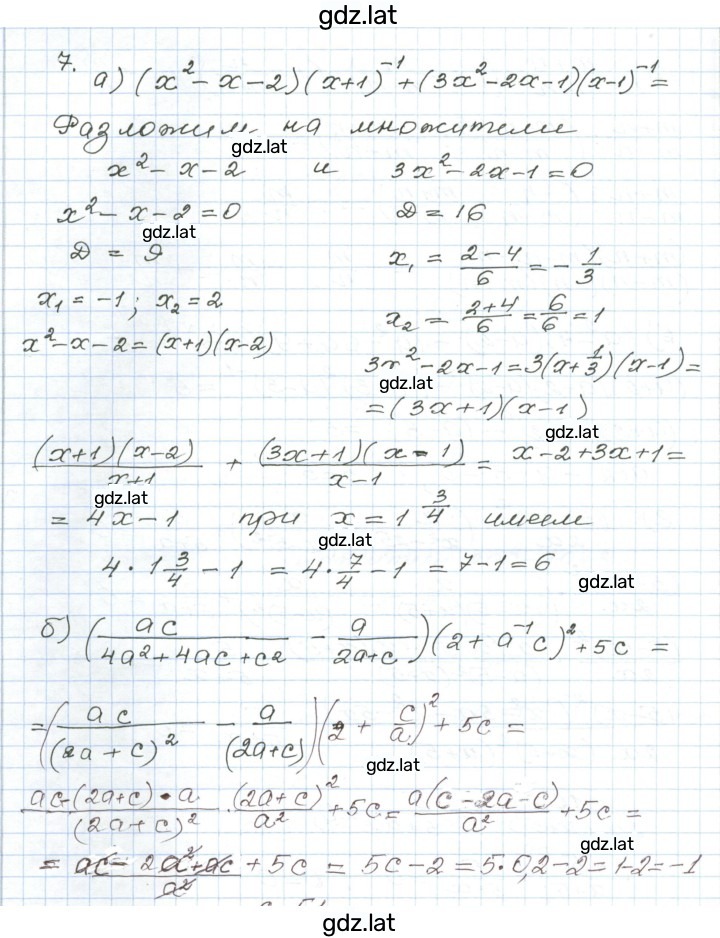 gdz.lat
7.
а) (x² - x - 2)(x+1)⁻¹ + (3x² - 2x - 1)(x-1)⁻¹ =
Разложим на множители
gdz.lat
x² - x - 2 и 3x² - 2x - 1 = 0
x² - x - 2 = 0 D = 16
gdz.lat
D = 9 x₁ = (2-4)/6 = -1/3
x₁ = -1; x₂ = 2 x₂ = (2+4)/6 = 6/6 = 1
x² - x - 2 = (x+1)(x-2)
3x² - 2x - 1 = 3(x + 1/3)(x-1) =
gdz.lat
= (3x+1)(x-1)
gdz.lat
(x+1)(x-2)/(x+1) + (3x+1)(x-1)/(x-1) = x-2+3x+1 =
gdz.lat
= 4x - 1 при x = 1 3/4 имеем
gdz.lat
4 · 1 3/4 - 1 = 4 · 7/4 - 1 = 7 - 1 = 6
gdz.lat
б) (ac/(4a²+4ac+c2) - a/(2a+c))(2 + a⁻¹c)² + 5c =
= (ac/(2a+c)² - a/(2a+c))(2 + c/a)² + 5c =
gdz.lat
(ac-(2a+c)·a)/(2a+c)² · (2a+c)²/a² + 5c = a(c-2a-c)/a² + 5c =
gdz.lat
= (ac - 2a² + ac)/a² + 5c = 5c - 2 = 5·0,2 - 2 = 1-2 = -1
gdz.lat